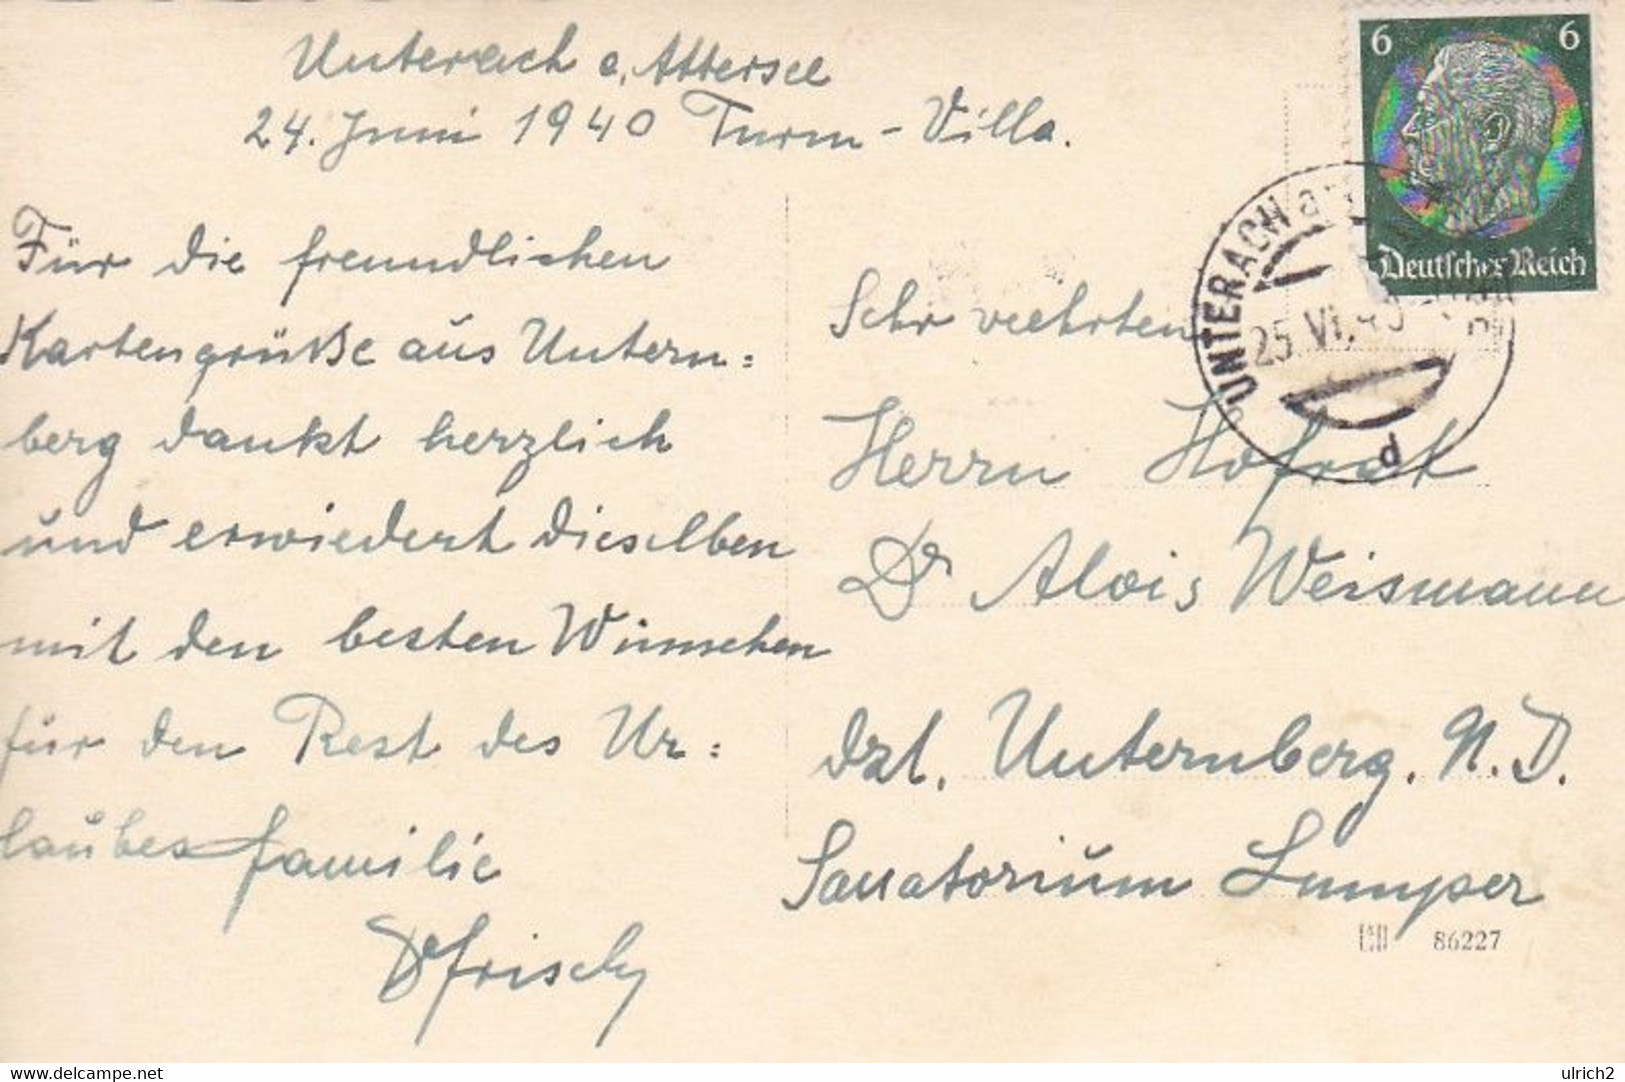 Unterach a. Attersee
24. Juni 1940 Turm-Villa.
Für die freundlichen
Kartengrüße aus Untern=
berg dankt herzlich
und erwiedert dieselben
mit den besten Wünschen
für den Rest des Ur=
laubes Familie
Dr Frisch
6 6
Deutsches Reich
UNTERACH
25.VI.40
d
Sehr verehrten
Herrn Hofrat
Dr Alois Weismann
dzt. Unternberg. N.D.
Sanatorium Lumper
86227
www.delcampe.net
ulrich2